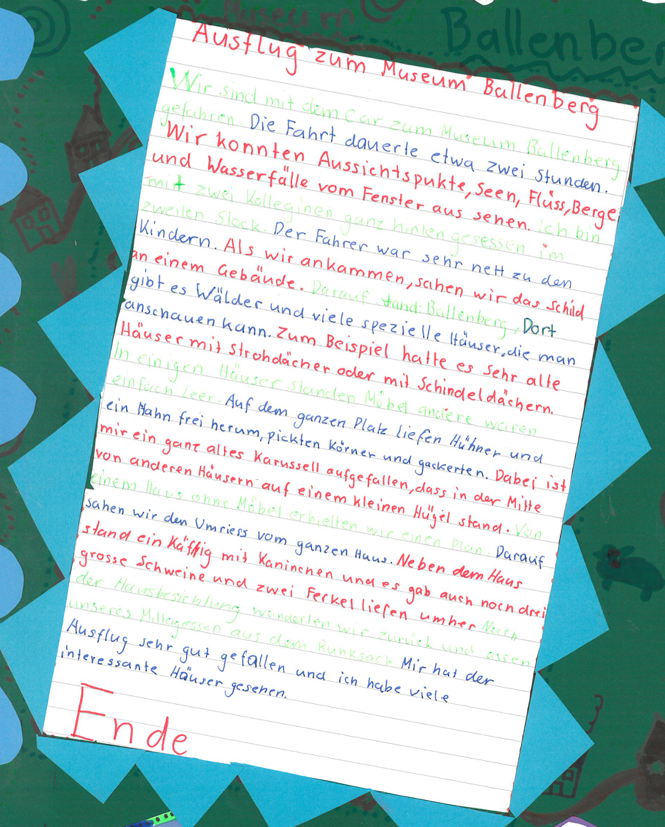 Museum
Ballenber
Ausflug zum Museum Ballenberg
Wir sind mit dem Car zum Museum Ballenberg
gefahren. Die Fahrt dauerte etwa zwei Stunden.
Wir konnten Aussichtspukte, Seen, Flüss, Berge
und Wasserfälle vom Fenster aus sehen. Ich bin
mit zwei Kolleginen ganz hinten gesessen im
zweiten Stock. Der Fahrer war sehr nett zu den
Kindern. Als wir ankammen, sahen wir das Schild
an einem Gebäude. Darauf stand Ballenberg. Dort
gibt es Wälder und viele spezielle Häuser, die man
anschauen kann. Zum Beispiel hatte es sehr alte
Häuser mit Strohdächer oder mit Schindeldächern.
In einigen Häuser standen Möbel andere waren
einfach leer. Auf dem ganzen Platz liefen Hühner und
ein Hahn frei herum, pickten Körner und gackerten. Dabei ist
mir ein ganz altes Karussell aufgefallen, dass in der Mitte
von anderen Häusern auf einem kleinen Hügel stand. Von
einem Haus ohne Möbel erhielten wir einen Plan. Darauf
sahen wir den Umriess vom ganzen Haus. Neben dem Haus
stand ein Käffig mit Kaninchen und es gab auch noch drei
grosse Schweine und zwei Ferkel liefen umher. Nach
der Hausbesichtung wanderten wir zurück und assen
unseres Mittagessen aus dem Runksack. Mir hat der
Ausflug sehr gut gefallen und ich habe viele
interessante Häuser gesehen.
Ende